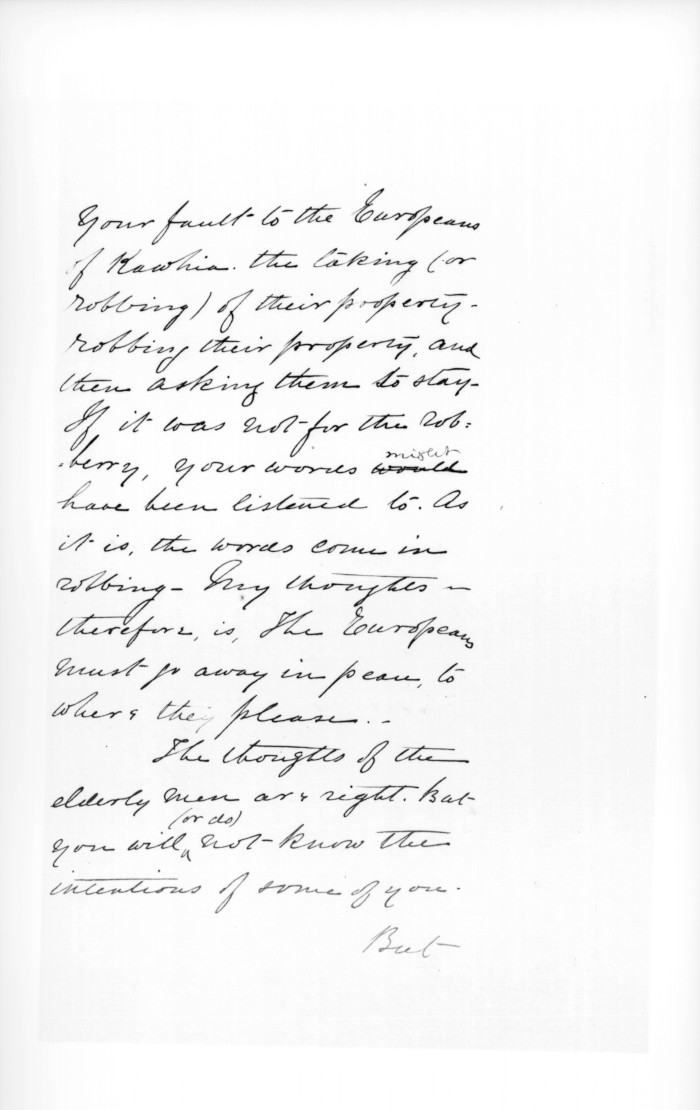 Your fault to the Europeans
of Kawhia. the taking (or
robbing) of their property-
robbing their property, and
then asking them to stay-
If it was not for the rob=
berry, your words ~~would~~ might
have been listened to. As
it is, the words come in
robbing- My thoughts -
therefore, is, The Europeans
must go away in peace, to
where they please. -
The thoughts of the
elderly men are right. But
you will (or do) not know the
intentions of some of you.
But